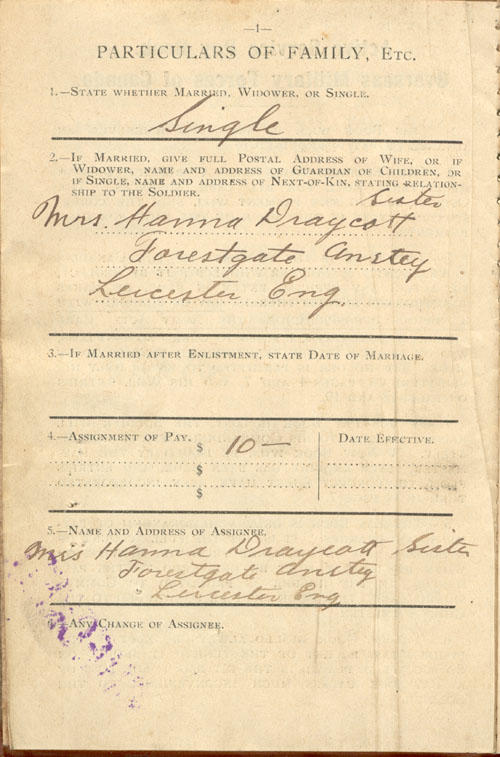 —1—
PARTICULARS OF FAMILY, ETC.
1.—STATE WHETHER MARRIED, WIDOWER, OR SINGLE.
Single
2.—IF MARRIED, GIVE FULL POSTAL ADDRESS OF WIFE, OR IF
WIDOWER, NAME AND ADDRESS OF GUARDIAN OF CHILDREN, OR
IF SINGLE, NAME AND ADDRESS OF NEXT-OF-KIN, STATING RELATION-
SHIP TO THE SOLDIER.
Sister
Mrs. Hanna Draycott
Forestgate Anstey
Leicester Eng.
3.—IF MARRIED AFTER ENLISTMENT, STATE DATE OF MARIIAGE.
4.—ASSIGNMENT OF PAY. $ 10— DATE EFFECTIVE.
$
$
5.—NAME AND ADDRESS OF ASSIGNEE.
Mrs Hanna Draycott Sister
Forestgate Anstey
Leicester Eng
6.—ANY CHANGE OF ASSIGNEE.